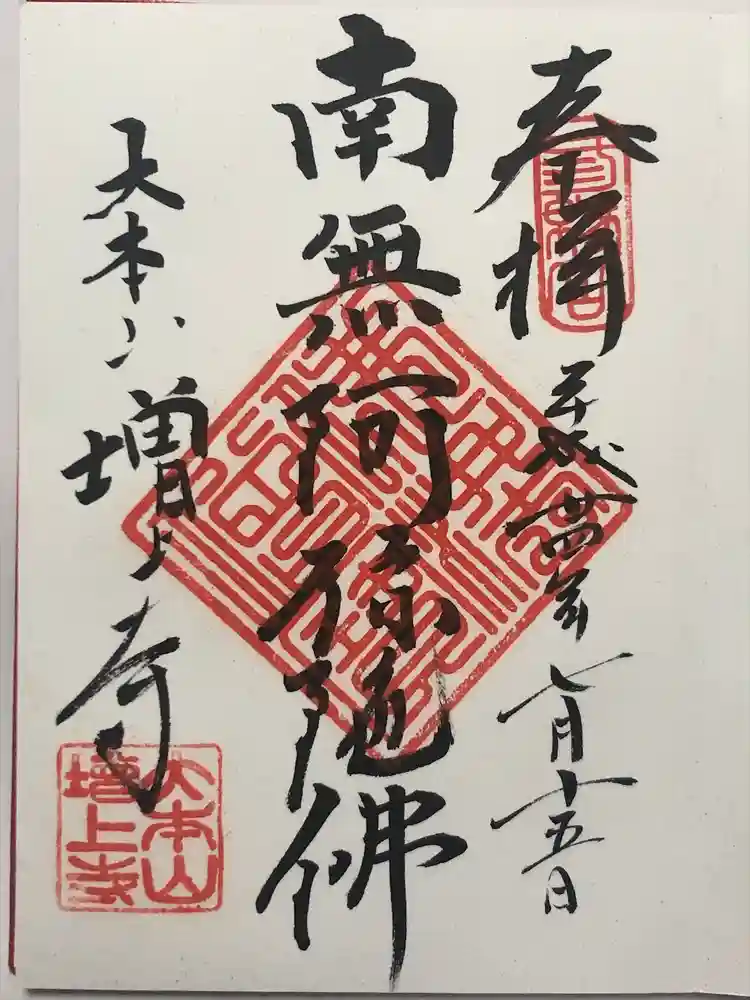 奉拝
平成廿四年七月十五日
南無阿弥陀佛
大本山増上寺
大本山
増上寺